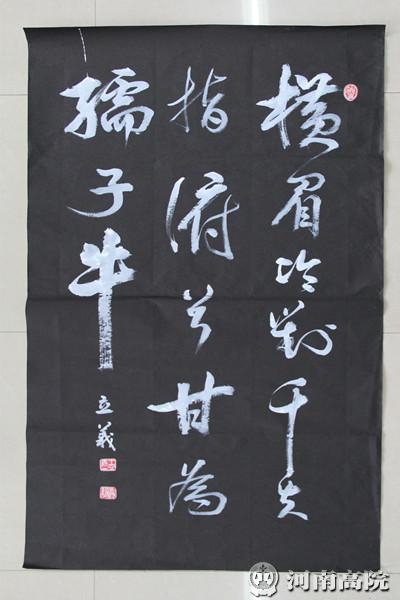 横眉冷對千夫
指俯首甘為
孺子牛
立義
河南高院